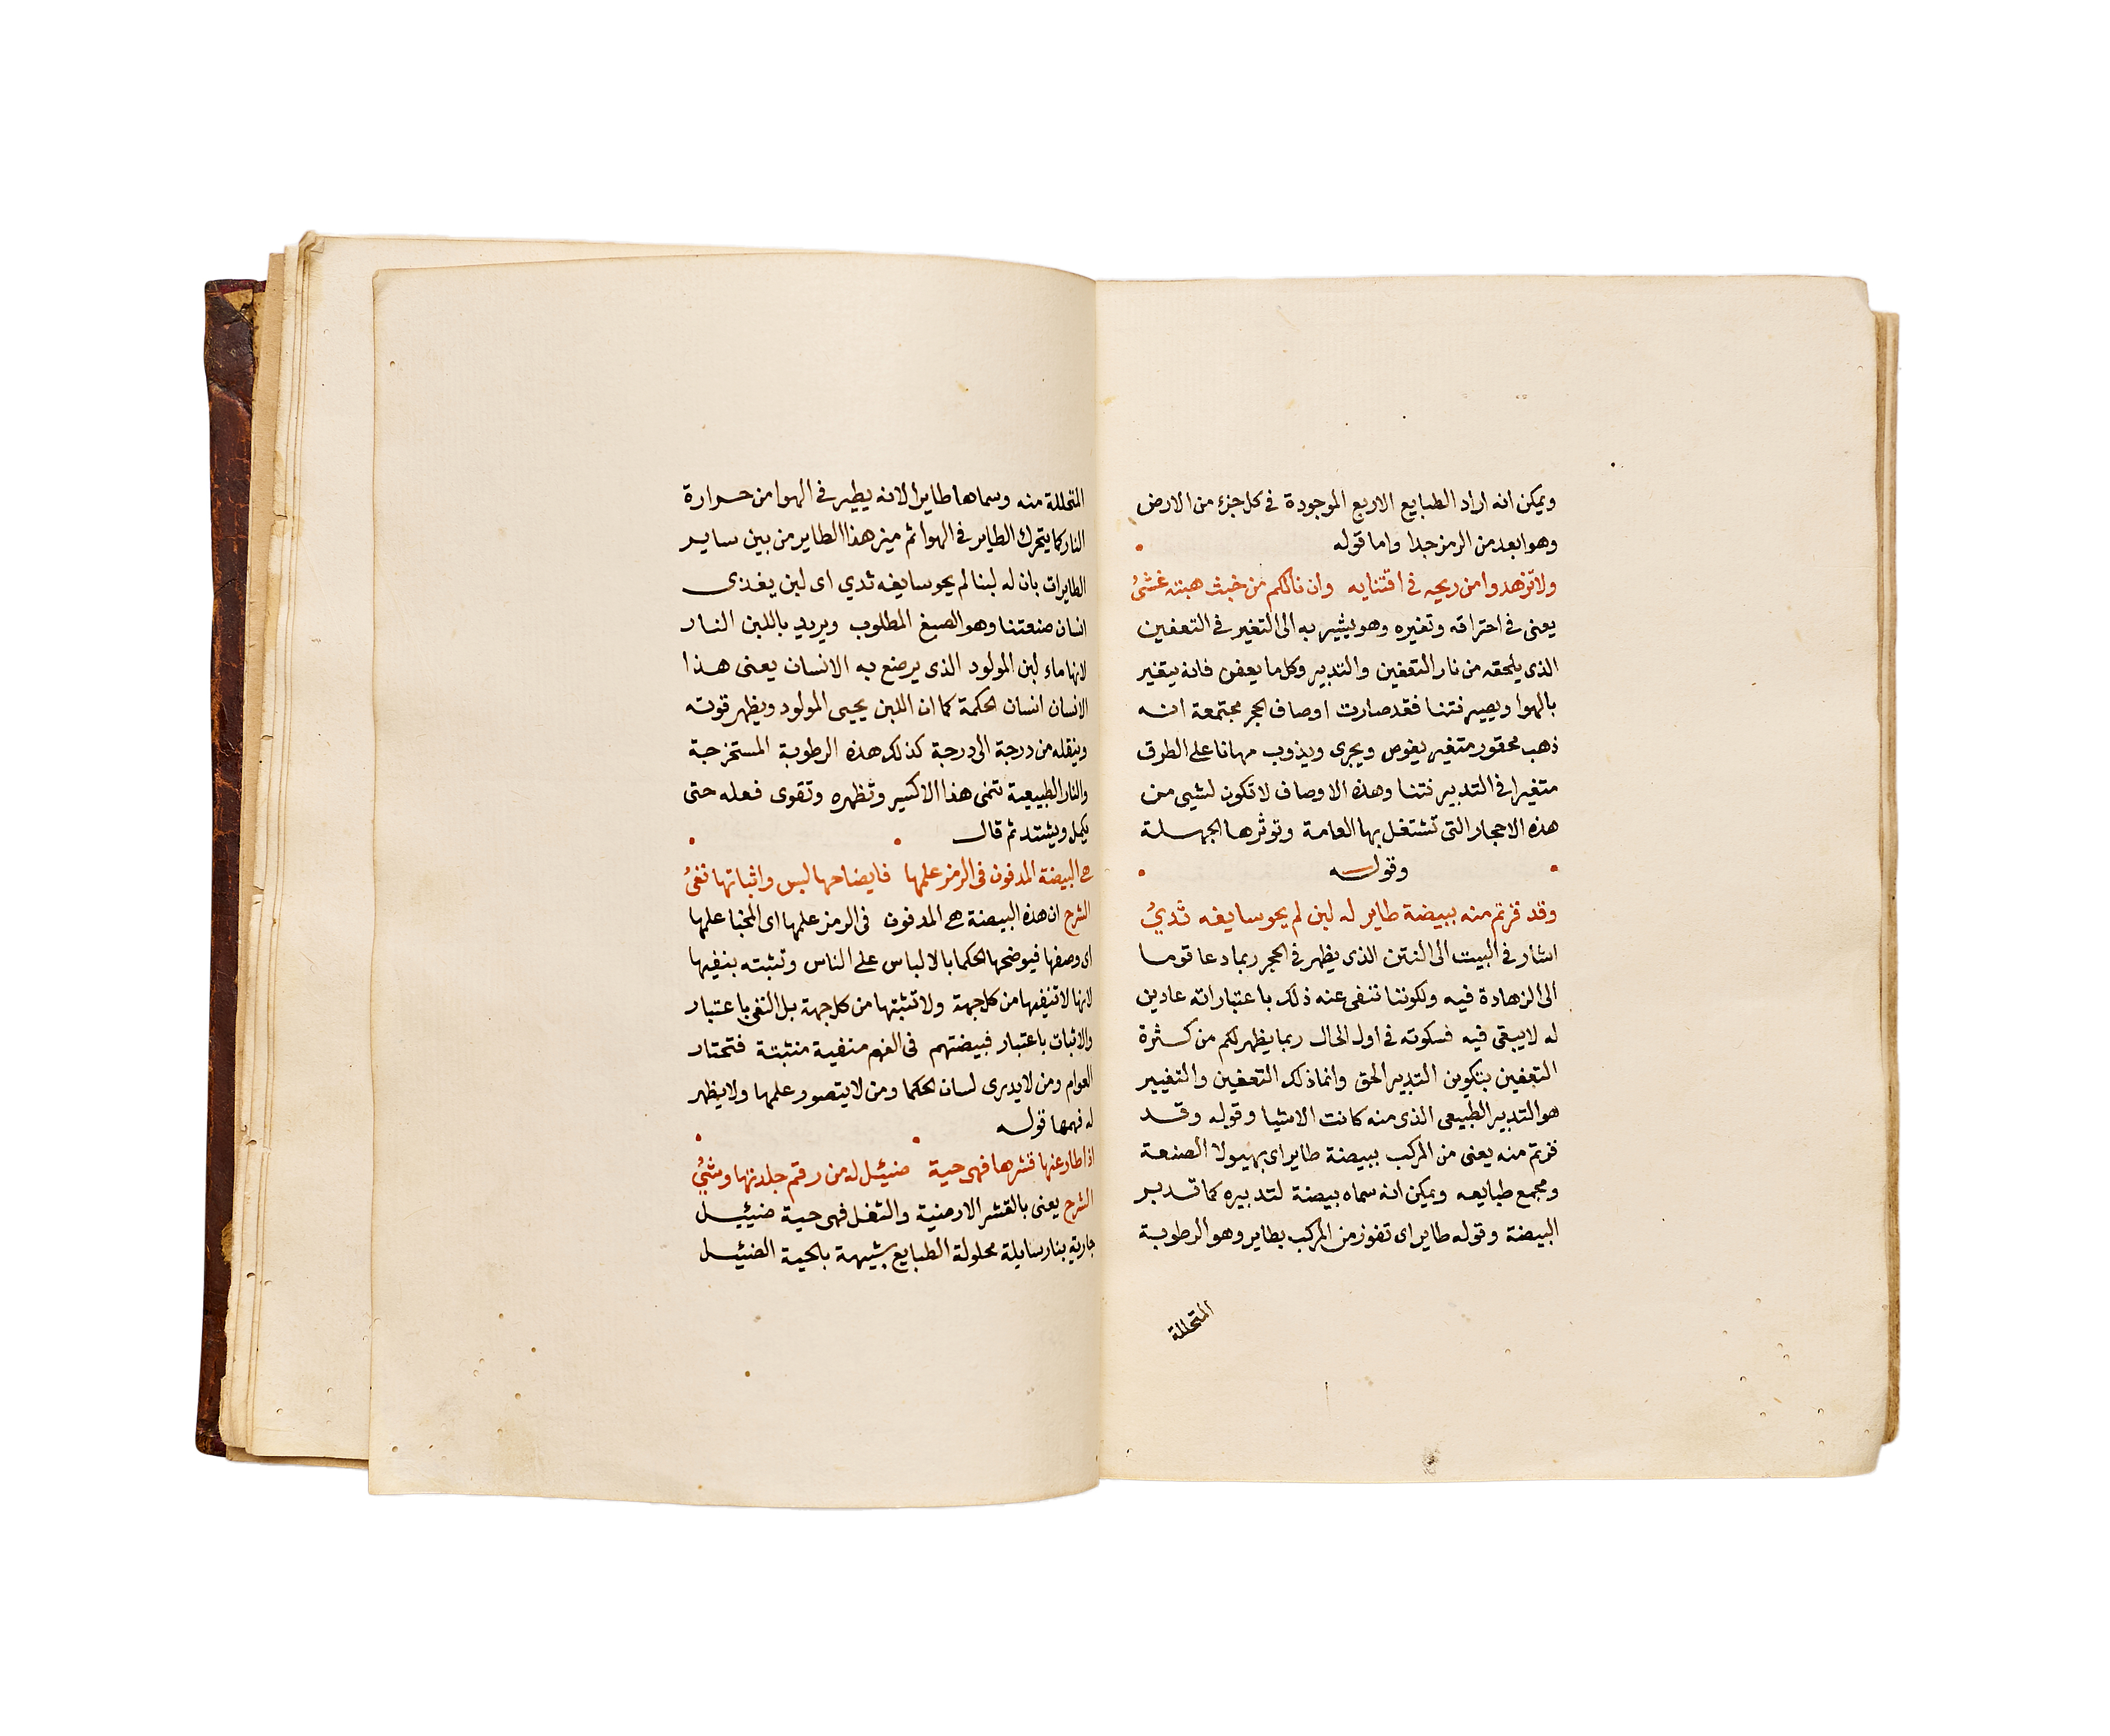 ويمكن انه اراد الطبايع الاربع الموجودة فى كل جزء من الارض
وهو ابعد من الرمز جدا واما قوله
ولا تزهدوا من ريحه فى اقتنايه وان نالكم من خبث هبته غشىُ
يعنى فى احتراقه وتغيره وهو يشير به الى التغير فى التعفين
الذى يلحقه من نار التعفين والتدبير وكل ما يعفن فانه يتغير
بالهوا ويصير نتنا فقد صارت اوصاف الحجر مجتمعة انه
ذهب محقور متغير يغوص ويجرى ويذوب مهانا على الطرق
متغيرا فى التدبير نتنا وهذه الاوصاف لا تكون لشيى من
هذه الاحجار التى تشتغل بها العامة وتوثرها الجهلة
وقوله
وقد فزتم منه ببيضة طاير له لبن لم يحو سايغه ثديُ
اشار فى البيت الى النتن الذى يظهر فى الحجر ربما دعا قوما
الى الزهادة فيه ولكوننا ننفى عنه ذلك باعتبار انه عادين
له لا يبقى فيه فسكوته فى اول الحال ربما يظهر لكم من كثرة
التعفين بتكوين التدبير الحق وانما ذلك التعفين والتغيير
هو التدبير الطبيعى الذى منه كانت الاشيا وقوله وقد
فزتم منه يعنى من المركب ببيضة طاير اى بهيولا الصنعة
ومجمع طبايعه ويمكن انه سماه بيضة لتدبيره كما تدبر
البيضة وقوله طاير اى تفوز من المركب بطاير وهو الرطوبة
المتحللة
المتحللة منه وسماها طايرا لانه يطير فى الهوا من حرارة
النار كما يتحرك الطاير فى الهوا ثم ميز هذا الطاير من بين ساير
الطايرات بان له لبنا لم يحو سايغه ثدي اى لبن يغذى
انسان صنعتنا وهو الصبغ المطلوب ويريد باللبن النار
لانها ماء لبن المولود الذى يرضع به الانسان يعنى هذا
الانسان انسان الحكمة كما ان اللبن يحيى المولود ويظهر قوته
وينقله من درجة الى درجة كذلك هذه الرطوبة المستخرجة
والنار الطبيعية تنمى هذا الاكسير وتظهره وتقوى فعله حتى
يكمل ويشتد ثم قال
هى البيضة المدفون فى الرمز علمها فايضاحها لبس واثباتها نفىُ
الشرح ان هذه البيضة هى المدفون فى الرمز علمها اى المخبا علمها
اى وصفها فيوضحها الحكما بالالباس على الناس وتثبته بنفيها
لانها لا تنفيها من كل جهة ولا تثبتها من كل جهة بل النفى باعتبار
والاثبات باعتبار فبيضتهم فى الفهم منفية منثبتة فتحتار
العوام ومن لا يدرى لسان الحكما ومن لا يتصور علمها ولا يظهر
له فهمها قوله
اذا طار عنها قشرها فهى حية ضئيل له من رقم جلدتها وشىُ
الشرح يعنى بالقشر الارضية والثفل فهى حية ضئيل
جارية بنار سايلة محلولة الطبايع شبيهة بالحية الضئيل